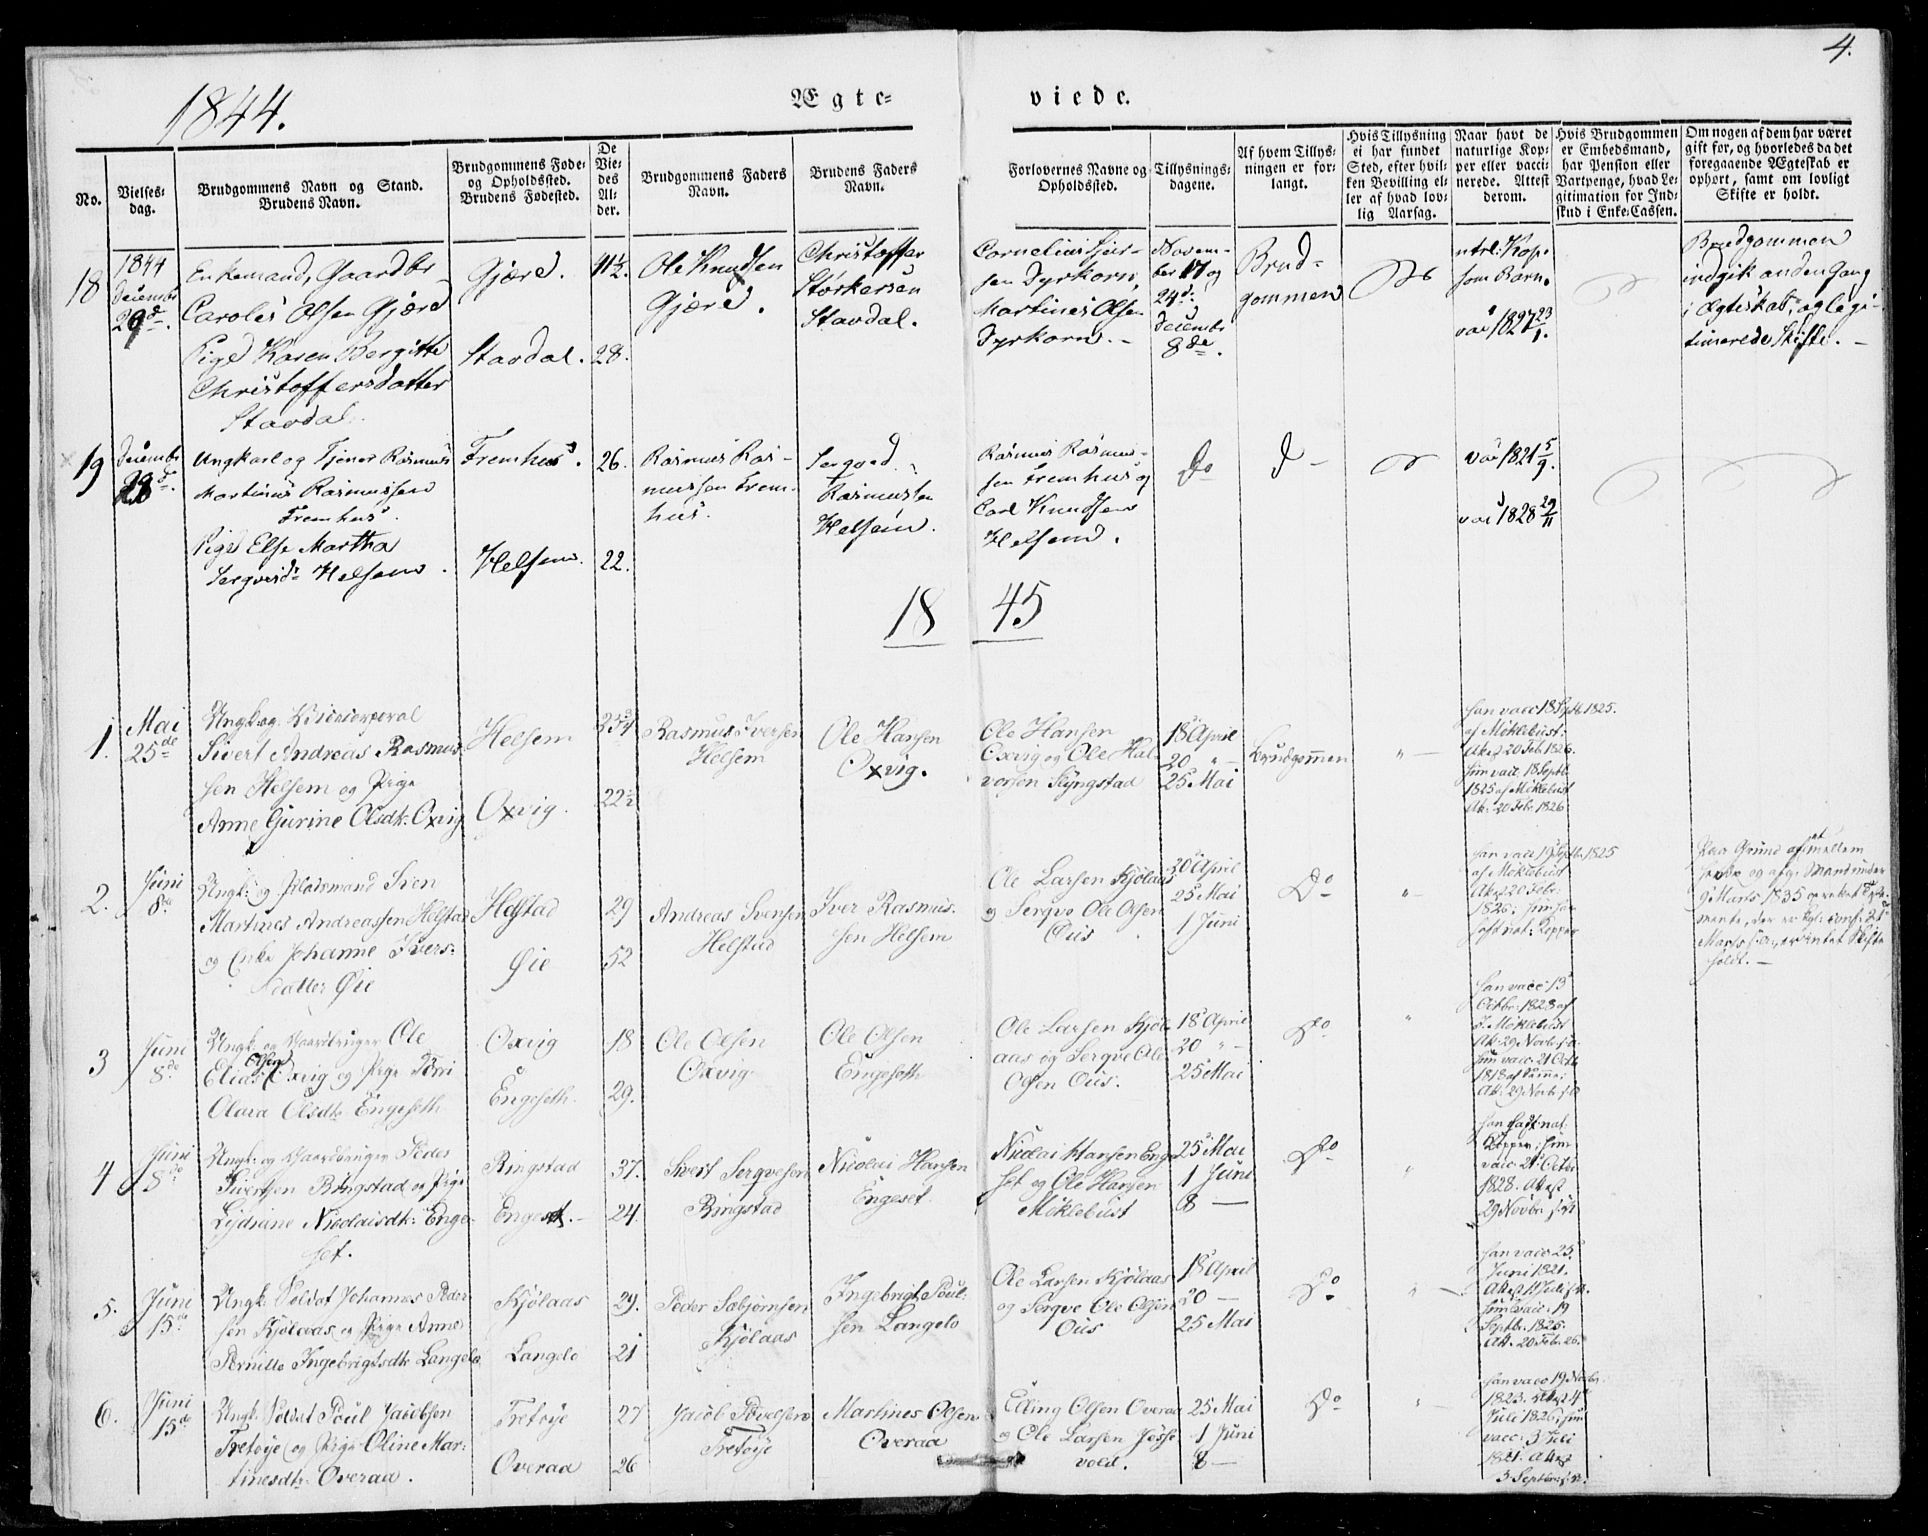 4.
1844.
Ægte-
viede.
No.
Vielses-
dag.
Brudgommens Navn og Stand.
Brudens Navn.
Brudgommens Føde-
og Opholdssted.
Brudens Fødested.
De
Vie-
des
Al-
der.
Brudgommens Faders
Navn.
Brudens Faders
Navn.
Forlovernes Navne og
Opholdssted.
Tillysnings-
dagene.
Af hvem Tillys-
ningen er for-
langt.
Hvis Tillysning
ei har fundet
Sted, efter hvil-
ken Bevilling el-
ler af hvad lov-
lig Aarsag.
Naar havt de
naturlige Kop-
per eller vacci-
nerede. Attest
derom.
Hvis Brudgommen
er Embedsmand,
har Pension eller
Vartpenge, hvad Le-
gitimation for Ind-
skud i Enke-Cassen.
Om nogen af dem har været
gift før, og hvorledes da det
foregaaende Ægteskab er
ophørt, samt om lovligt
Skifte er holdt.
18
1844
Decembr
29d.
Enkemand, Gaardbr
Caroles Olsen Gjære
Pige Karen Bergitte
Christoffersdatter
Stavdal.
Gjære.
Stavdal.
41½.
28.
Ole Knudsen
Gjære.
Christoffer
Størkersen
Stavdal.
Cornelius Sjur-
sen Dyrkorn,
Martines Olsen
Dyrkorn.
Novem-
ber 17 og
24d:
Decembr
8de.
Brud-
gommen
ntrl: Kop.
som Barn.
vac 1827 23/1.
Brudgommen
indgik anden Gang
i Ægteskab, og legi-
timerede Skifte.
19
Decembr
Ungkarl og Tjener Rasmus
Martinus Rasmussen
Fremhus.
Pige Else Martha
Helsem.
Fremhus.
Helsem.
26.
22.
Rasmus Ras-
mussen Frem-
hus.
Rasmussen
Helsem.
Rasmus Rasmus-
sen Fremhus og
Carl Knudsen
Helsem.
Do
D
vac 1821 5/9.
vac 1828 29/11
18 45
1.
Mai
25de
Ungk. og
Sivert Andreas Rasmus-
sen Helsem og Pige
Anne Gurine Olsdt: Oxvig
Helsem
Oxvig.
22½
Rasmus Iversen
Helsem
Ole Hansen
Oxvig.
Ole Hansen
Oxvig og Ole Hal-
vorsen Slyngstad
18 April
20 "
25 Mai
Brudgommen
"
han vacc: 18 Septb. 1825.
af Møklebust:
Atest 20 Feb. 1826.
hun vacc. 18 Septb.
1825 af Møklebust
At: 20 Feb. 1826
2.
Juni
8de
Ungk: og Pladsmand Sven
Martines Andreassen Helstad
og Enke Johanne Ivers-
datter Øie
Helstad
Øie
29
52
Andreas Svensen
Helstad
Iver Rasmus-
sen Helsem
Ole Larsen Kjølaas
og Sergve Ole Olsen
Ous
20 April
25 Mai
1 Juni
Do
"
af Møklebust
Atest 20 Febr:
1826; hun har
havt nat: Kopper
Paa Grund af et mellem
9 Marts 1835 oprettet Testa-
mente,
holdt.
3
Juni
8de
Ungk. og Gaardbruger Ole
Elias Olsen Oxvig og Pige
Olava Olsdt: Engeseth
Oxvig
Engeseth.
18
29.
Ole Olsen
Oxvig
Ole Olsen
Engeseth
Ole Larsen Kjøl-
aas og Sergve Ole
Olsen Ous.
18 April
20 "
25 Mai
Do
"
han vacc: 13
Octbr: 1828 af
Møklebust
At: 29 Novbr
hun vacc. 21 Octbr
1818 af Samme:
At: 29 Novbr
4
Juni
8de
Ungk: og Gaardbruger Peder
Sivertsen Ringstad og Pige
Lydiane Nicolaisdt: Enge-
set.
Ringstad
Engeset.
37.
24.
Sivert Sergvesen
Ringstad
Nicolai Hansen
Engeset
Nicolai Hansen Enge-
set og Ole Hansen
Møklebust
25 Mai
1 Juni
8 —
Do
"
han havt nat.
Kopper; hun
vacc 21 Octbr
1828. Atest
29 Novbr
5.
Juni
15de
Ungk: Soldat Johannes Peder-
sen Kjølaas og Pige Anne
Pernille Ingebrigtsdt: Langelo
Kjølaas
Langelo
29.
21
Peder Sæbjørnsen
Kjølaas
Ingebrigt Poul-
sen Langelo
Ole Larsen Kjølaas
og Sergve Ole Olsen
Ous
18 April
20 —
25 Mai
Do
"
han vacc 25
Juni 1821.
hun vacc: 19
Septb: 1825:
Att. 20 Feb. 26.
6.
Juni
15de
Ungk: Soldat Poul Jacobsen
Tretøie og Pige Oline Mar-
tinesdt: Overaa.
Tretøie
Overaa
27
26
Jacob Povelsen
Tretøie
Martines Olsen
Overaa
Elling Olsen Overaa
og Ole Larsen Jysse-
vold.
25 Mai
1 Juni
8 —
Do
"
han vacc 19 Novbr.
1823. Atest 4
Juli 1826; hun
vacc: 3 Juli
1821. Atest
3 Septbr: